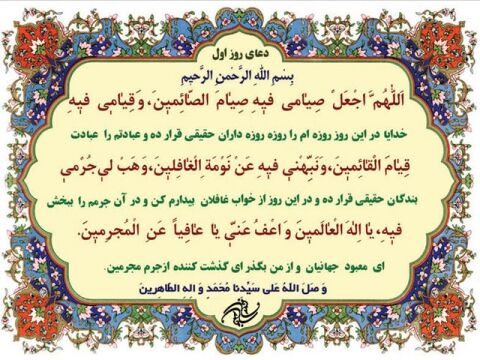 دعای روز اول
بِسْمِ اللهِ الرَّحْمنِ الرَّحیمِ
اَللّهُمَّ اجْعَلْ صِیامی فیهِ صِیامَ الصّائِمینَ، وَقِیامی فیهِ
خدایا در این روز روزه ام را روزه روزه داران حقیقی قرار ده و عبادتم را عبادت
قِیامَ الْقائِمینَ، وَنَبِّهْنی فیهِ عَنْ نَوْمَةِ الْغافِلینَ، وَهَبْ لی جُرْمی
بندگان حقیقی قرار ده و در این روز از خواب غافلان بیدارم کن و در آن جرمم را ببخش
فیهِ، یا اِلهَ الْعالَمینَ وَ اعْفُ عَنّی یا عافِیاً عَنِ الْمُجرِمینَ.
ای معبود جهانیان و از من بگذر ای گذشت کننده از جرم مجرمین.
وَ صَلَ اللهُ عَلی سَیِّدنا مُحَمَدٍ وَ الِهِ الطّاهِرینَ